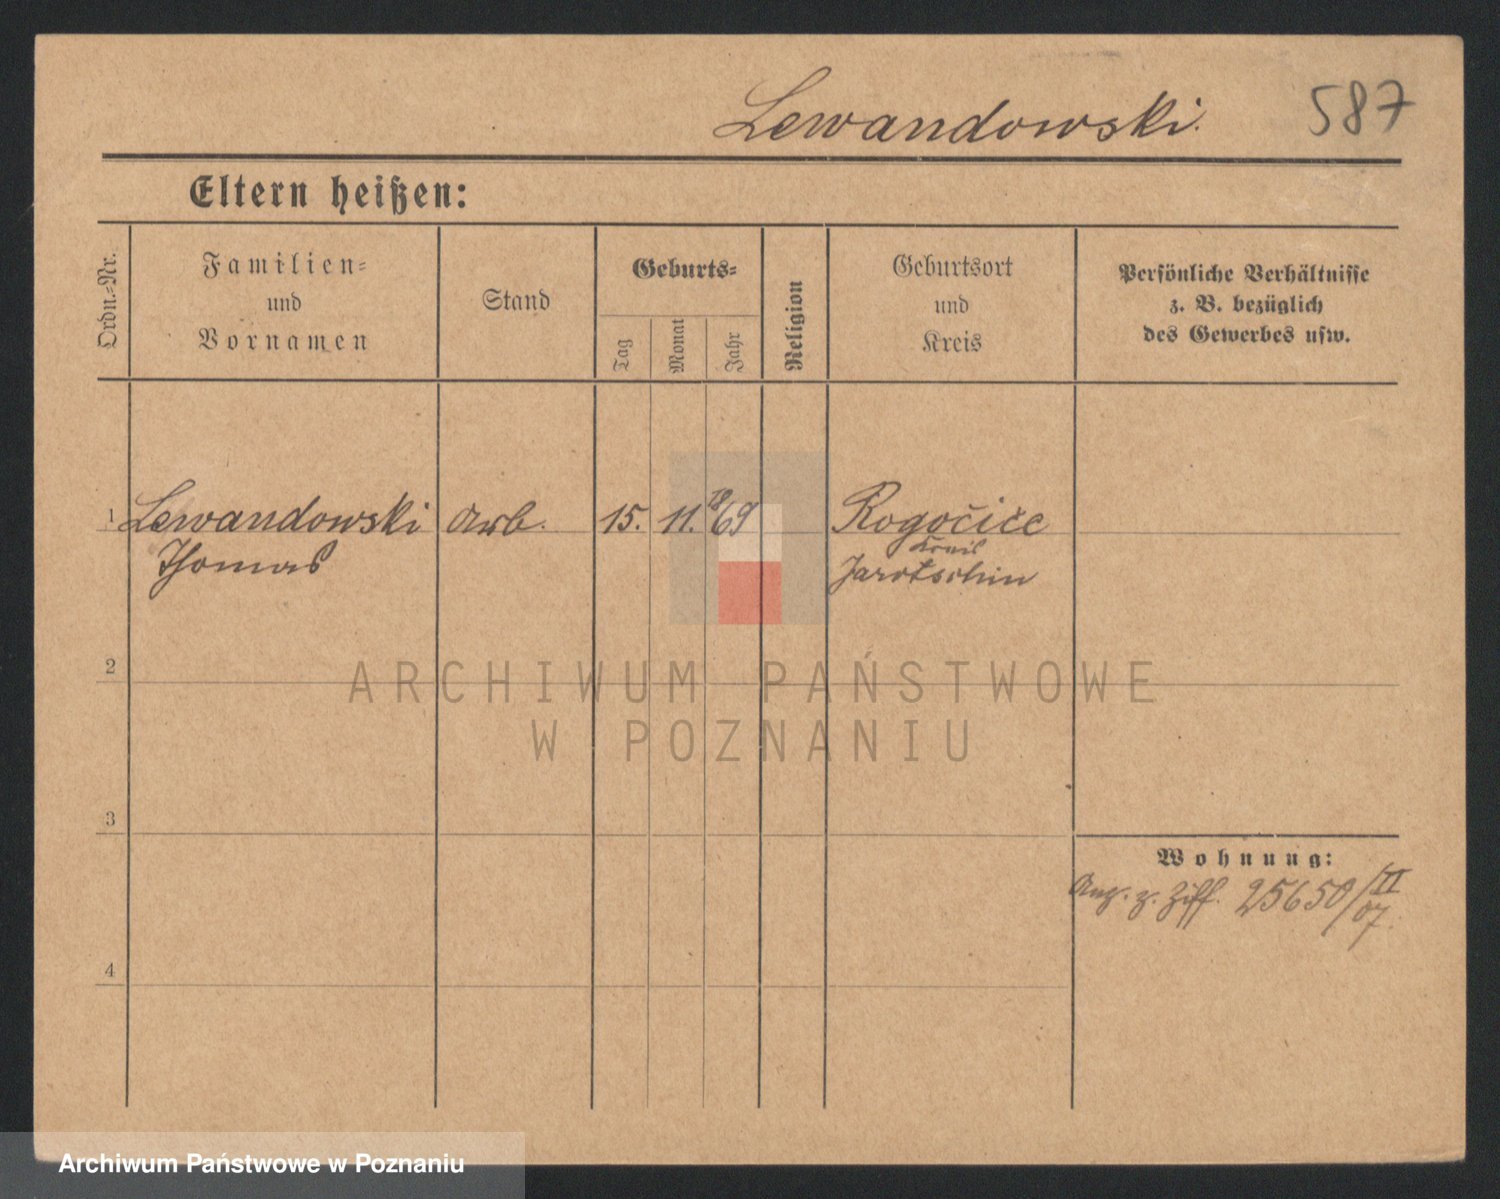 Lewandowski.
587
Eltern heißen:
Ordn.-Nr.
Familien-
und
Vornamen
Stand
Geburts-
Tag
Monat
Jahr
Religion
Geburtsort
und
Kreis
Persönliche Verhältnisse
z. B. bezüglich
des Gewerbes usw.
1 Lewandowski Arb. 15. 11. 18/69 Rogočiče
Thomas
Kreis
Jarotschin
2
ARCHIWUM PAŃSTWOWE
W POZNANIU
3
Wohnung:
Anz. z. Ziff. 25650/II
07.
4
Archiwum Państwowe w Poznaniu